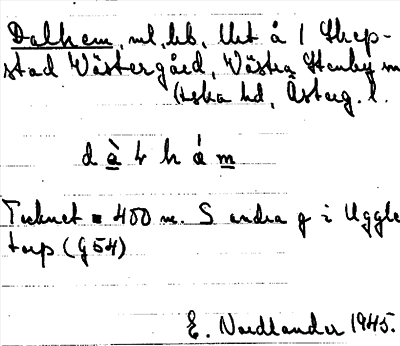 Dalhem, nl, lb, Utt å 1 Skep-
stad Västergård, Västra Stenby sn
Aska hd, Östug. l.
d à ł h á m
Tecknet ≡ 400 m. S andra g i Uggle
torp (G54)
E. Nordlander 1945.